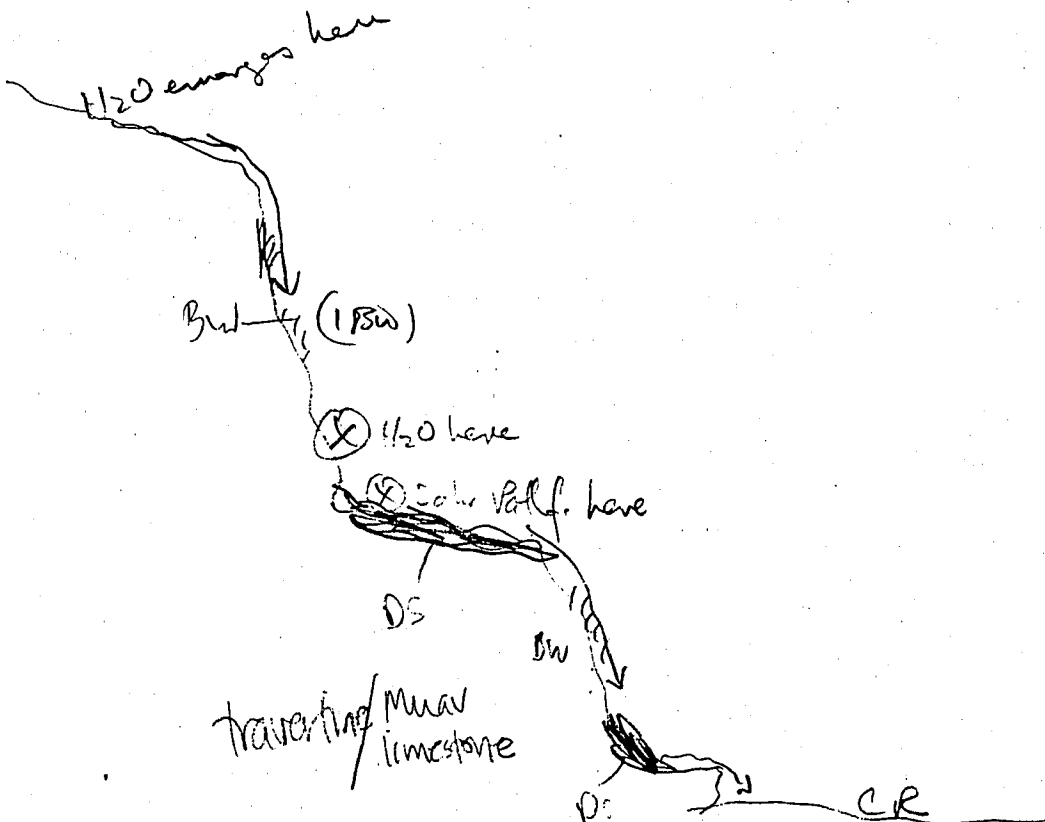 H2O emerges here
BW (1 BW)
X H2O here
X
here
DS
BW
travertine/Muav
limestone
DS
CR